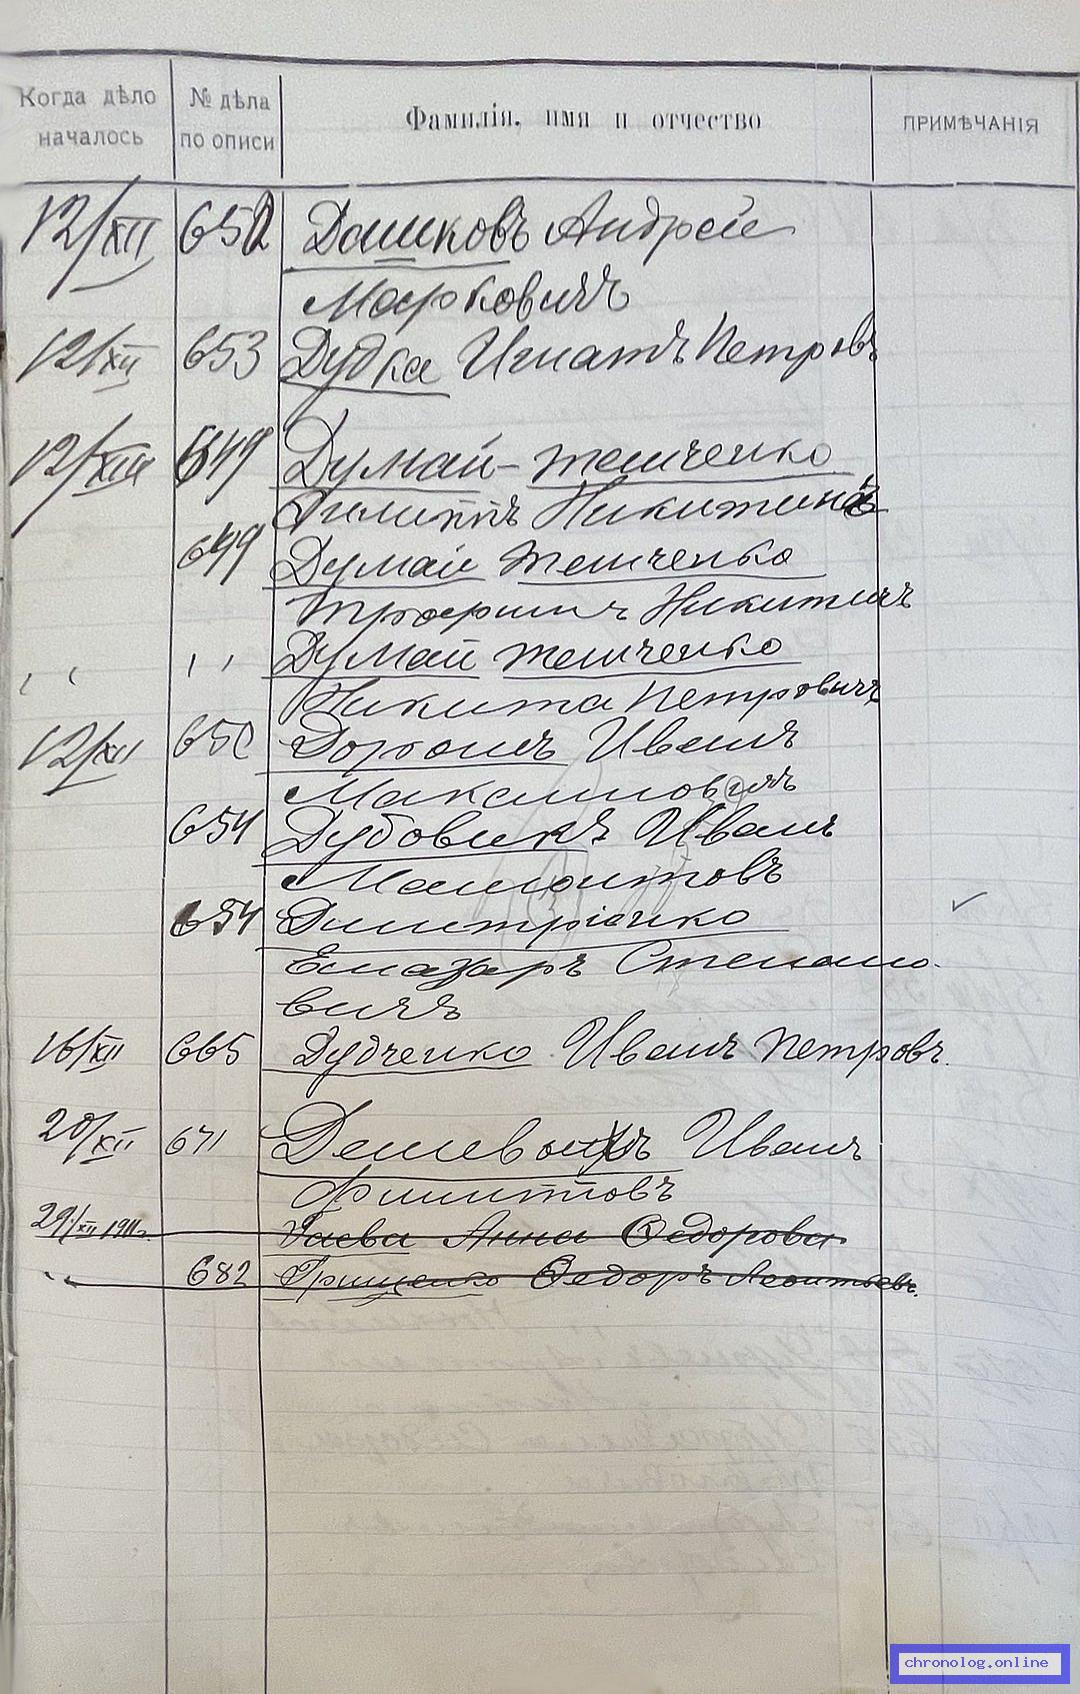 Когда дѣло началось
№ дѣла по описи
Фамилія, имя и отчество
ПРИМѢЧАНІЯ
12/XII 652 Дашковъ Андрей
Марковичъ
12/XII 653 Дудка Игнатъ Петровъ
12/XII 649 Думай-Темченко
Филиппъ Никитинъ
649 Думай Темченко
Трофимъ Никитичъ
" " Думай Темченко
Никита Петровичъ
12/XII 650 Иванъ
Максимовичъ
654 Дубовикъ Иванъ
Мамонтовъ
654 Димитрієнко
Елеазаръ Степано-
вичъ
16/XII 665 Дудченко Иванъ Петровъ.
20/XII 671 Иванъ
Филипповъ
29/XII 1911г. Гаева Анна Ѳедорова
" 682 Грищенко Ѳедоръ Леонтьевъ.
chronolog.online